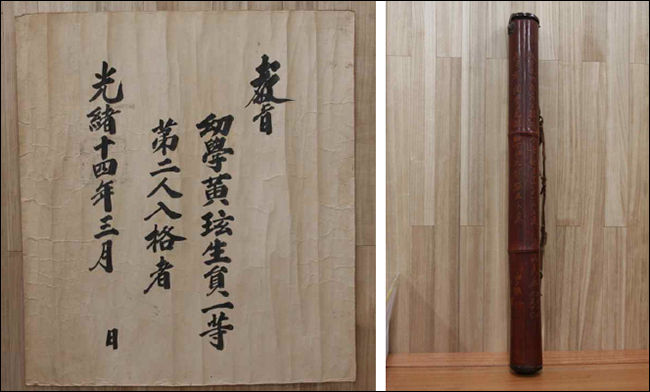 敎旨
幼學黃玹生員一等
第二人入格者
光緒十四年三月 日